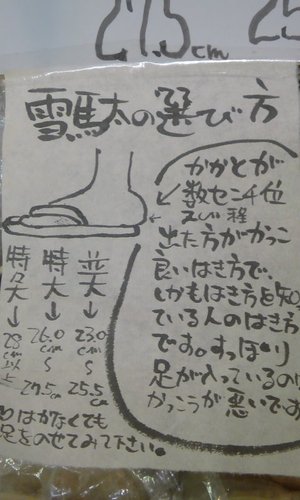 27.5cm
25
雪駄の選び方
かかとが
数センチ位
出た方がかっこ
良いはき方で、
しかもはき方を知
ている人のはき方
です。すっぽり
足が入っているの
かっこうが悪いです
並大→23.0cm〜25.5cm
特大→26.0cm〜27.5cm
特々大→28cm以上
はかなくても
足をのせてみて下さい。